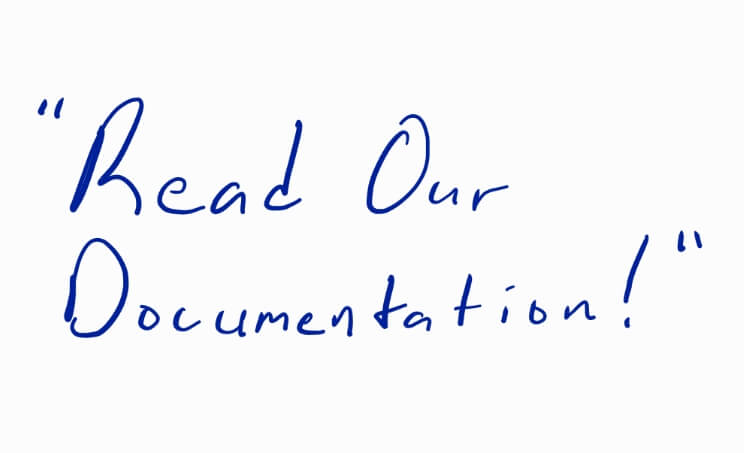 "Read Our
Documentation!"